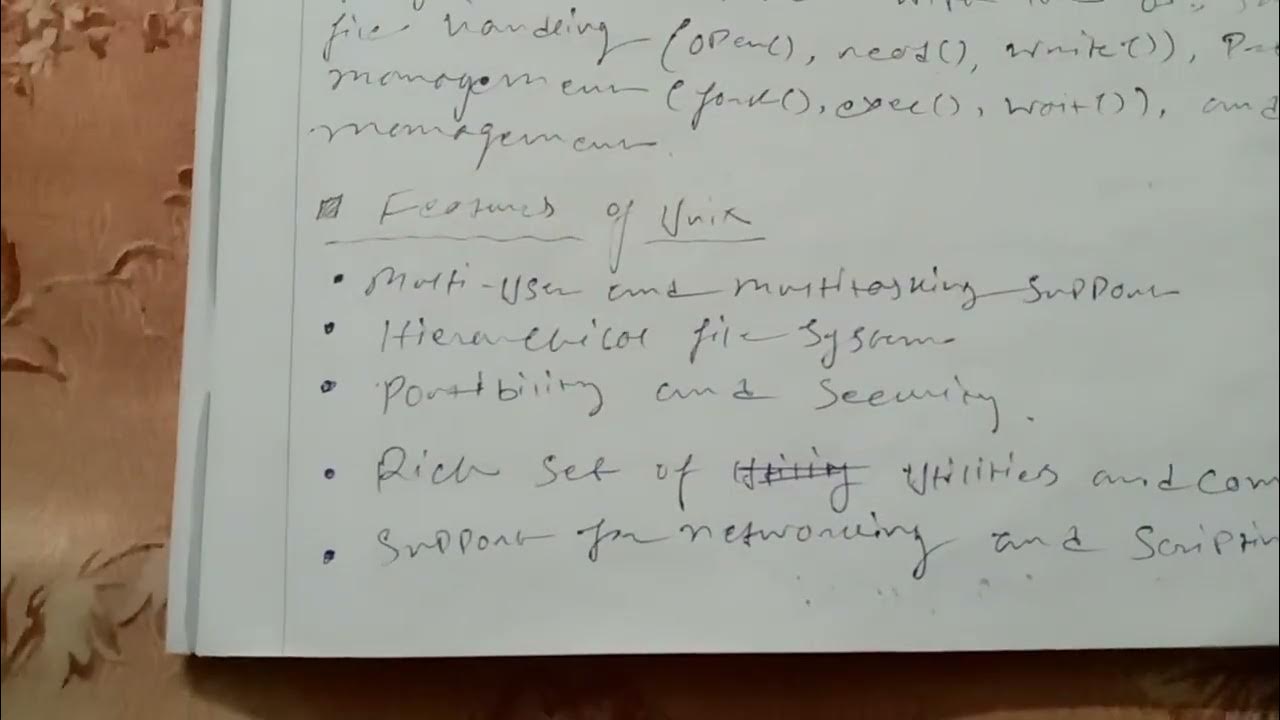 file handling (open(), read(), write()), P
management (fork(), exec(), wait()), and
management.
Features of Unix
• Multi-user and multitasking support
• Hierarchical file system
• Portbility and Security.
• Rich set of Utilities and com
• Support for networking and Scriptin